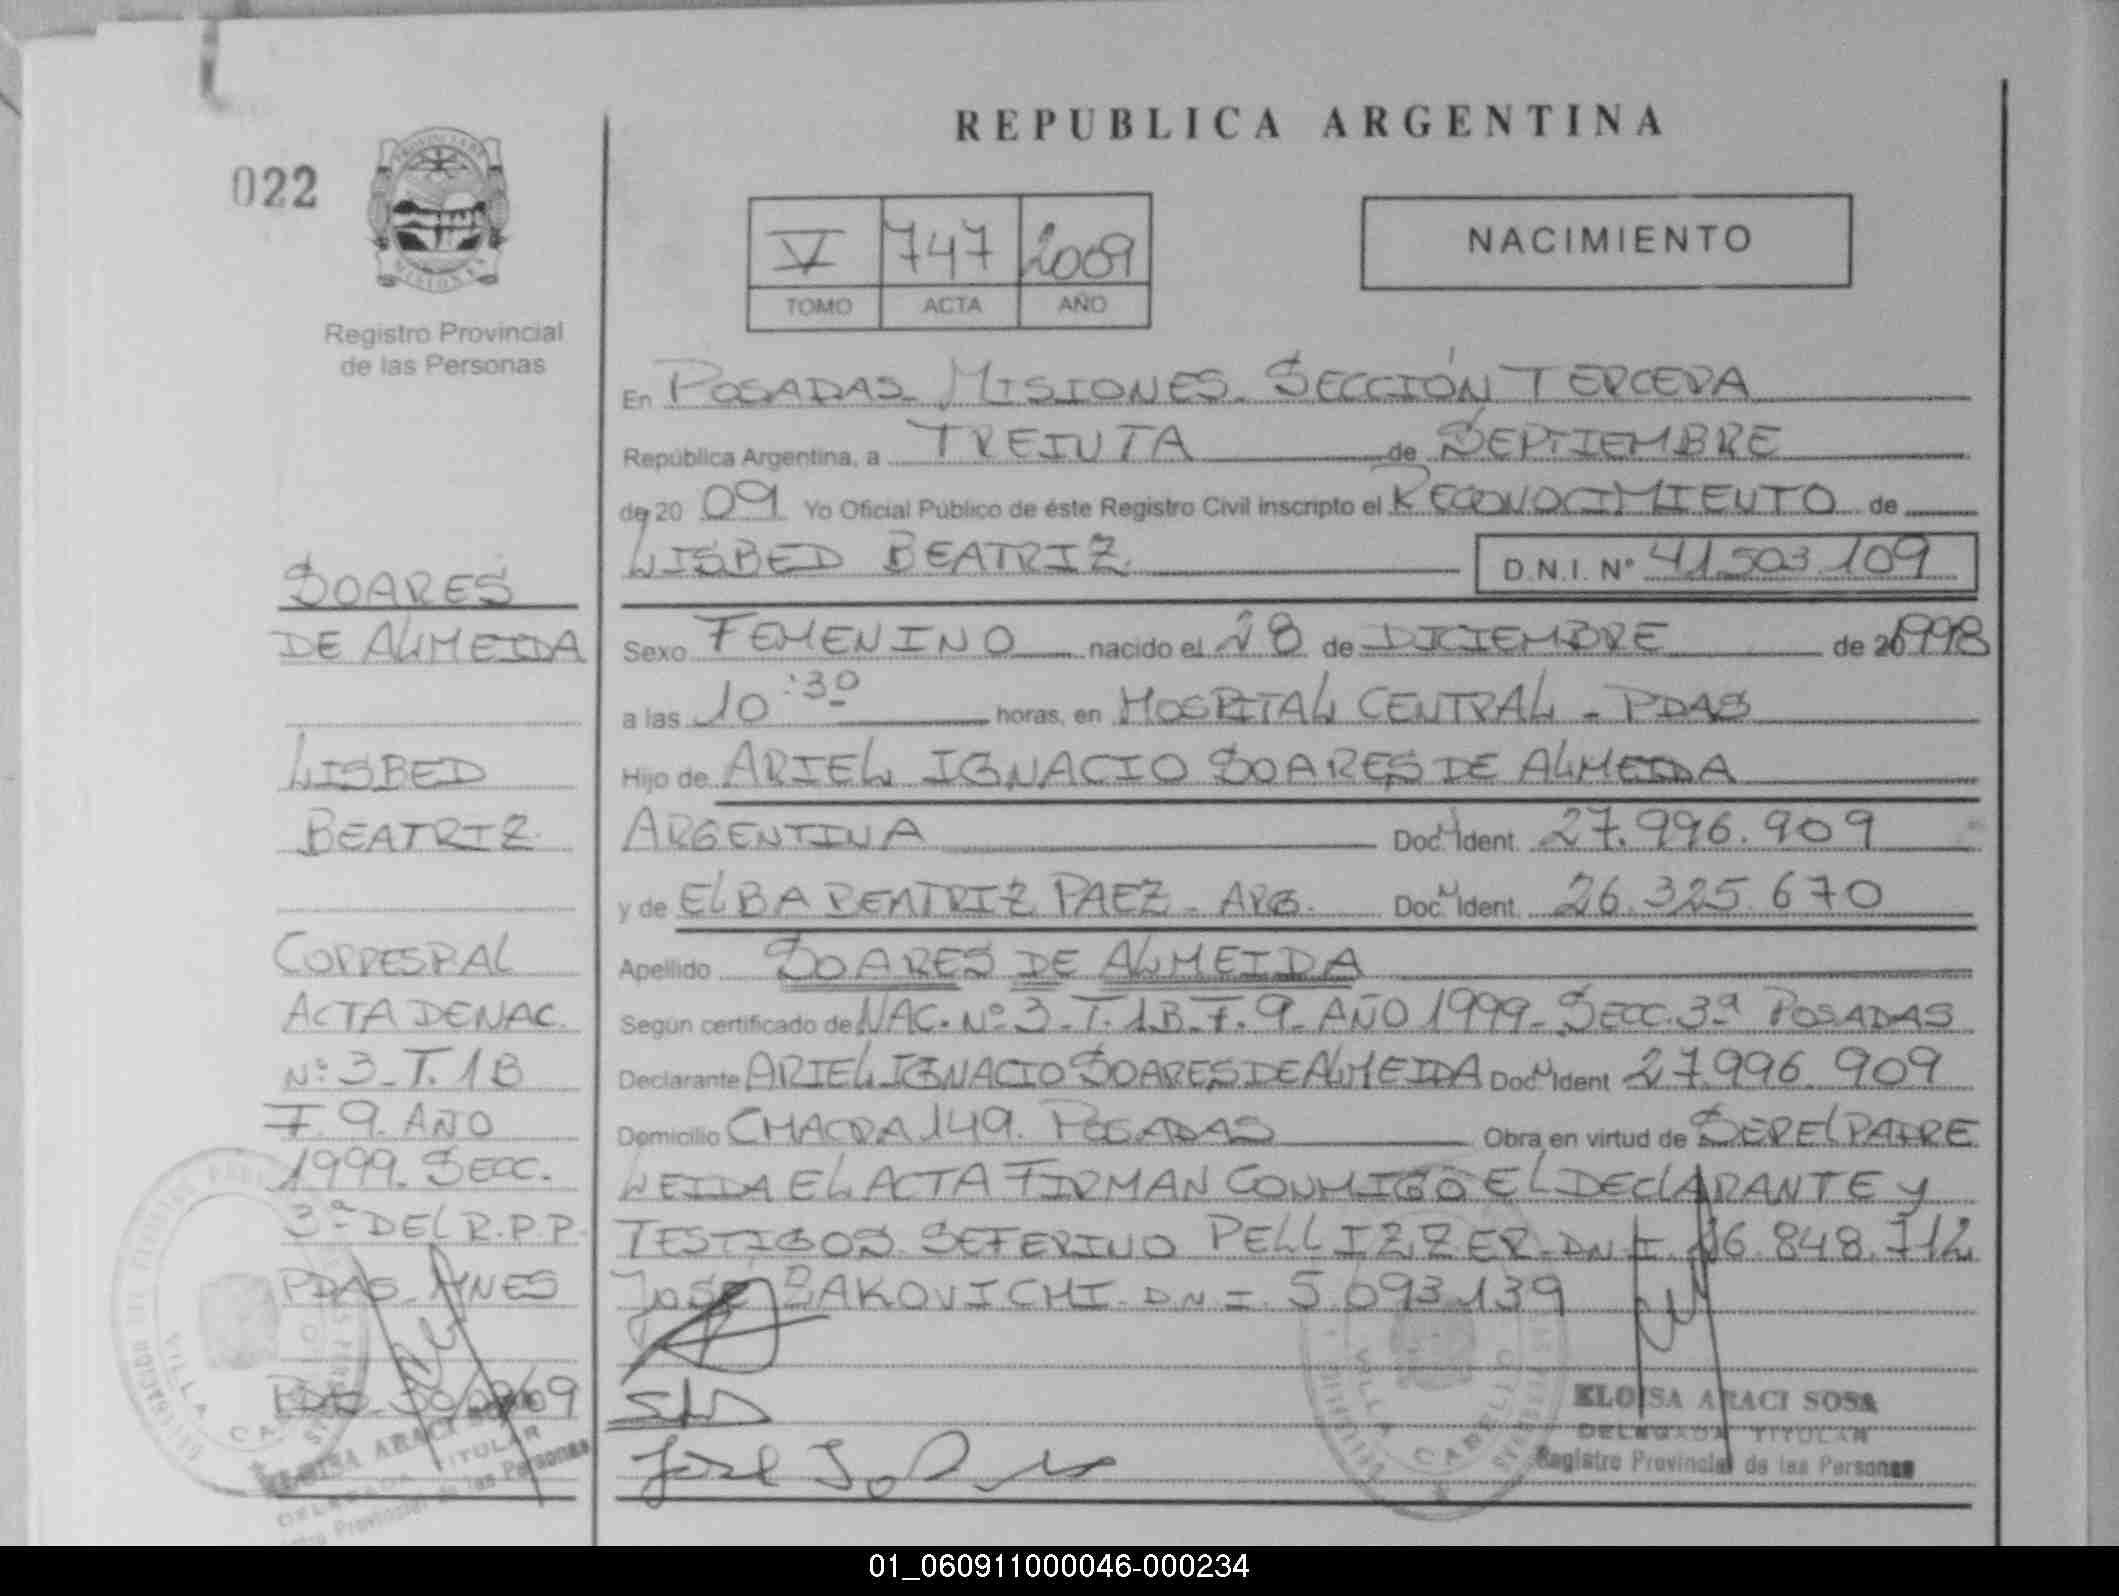 REPUBLICA ARGENTINA
022
V 747 2009
TOMO ACTA AÑO
NACIMIENTO
Registro Provincial
de las Personas
SOARES
DE ALMEIDA
LISBED
BEATRIZ
CORRESP. AL
ACTA DE NAC.
Nº 3 - T. 1B
F. 9. AÑO
1999. SECC.
3ª DEL R.P.P.
PDAS. MNES
ELOISA ARACI SOSA
DELEGADA TITULAR
Registro Provincial de las Personas
En POSADAS - MISIONES - SECCIÓN TERCERA
República Argentina, a TREINTA de SEPTIEMBRE
de 20 09 Yo Oficial Público de éste Registro Civil inscripto el RECONOCIMIENTO de
LISBED BEATRIZ D.N.I. Nº 41.503.109
Sexo FEMENINO nacido el 28 de DICIEMBRE de 1998
a las 10:30 horas, en HOSPITAL CENTRAL - PDAS
Hijo de ARIEL IGNACIO SOARES DE ALMEIDA
ARGENTINA Doc. Ident. 27.996.909
y de ELBA BEATRIZ PAEZ - ARG. Doc. Ident. 26.325.670
Apellido SOARES DE ALMEIDA
Según certificado de NAC. Nº 3 - T. 1B - F. 9 - AÑO 1999 - SECC. 3ª POSADAS
Declarante ARIEL IGNACIO SOARES DE ALMEIDA Doc. Ident 27.996.909
Domicilio CHACRA 149. POSADAS Obra en virtud de SER EL PADRE
LEIDA EL ACTA FIRMAN CONMIGO EL DECLARANTE y
TESTIGOS SEFERINO PELLIZZER - DNI 16.848.712
JOSÉ BAKOVICHI - DNI. 5.093.139
ELOISA ARACI SOSA
DELEGADA TITULAR
Registro Provincial de las Personas
VILLA CABELLO
01_060911000046-000234